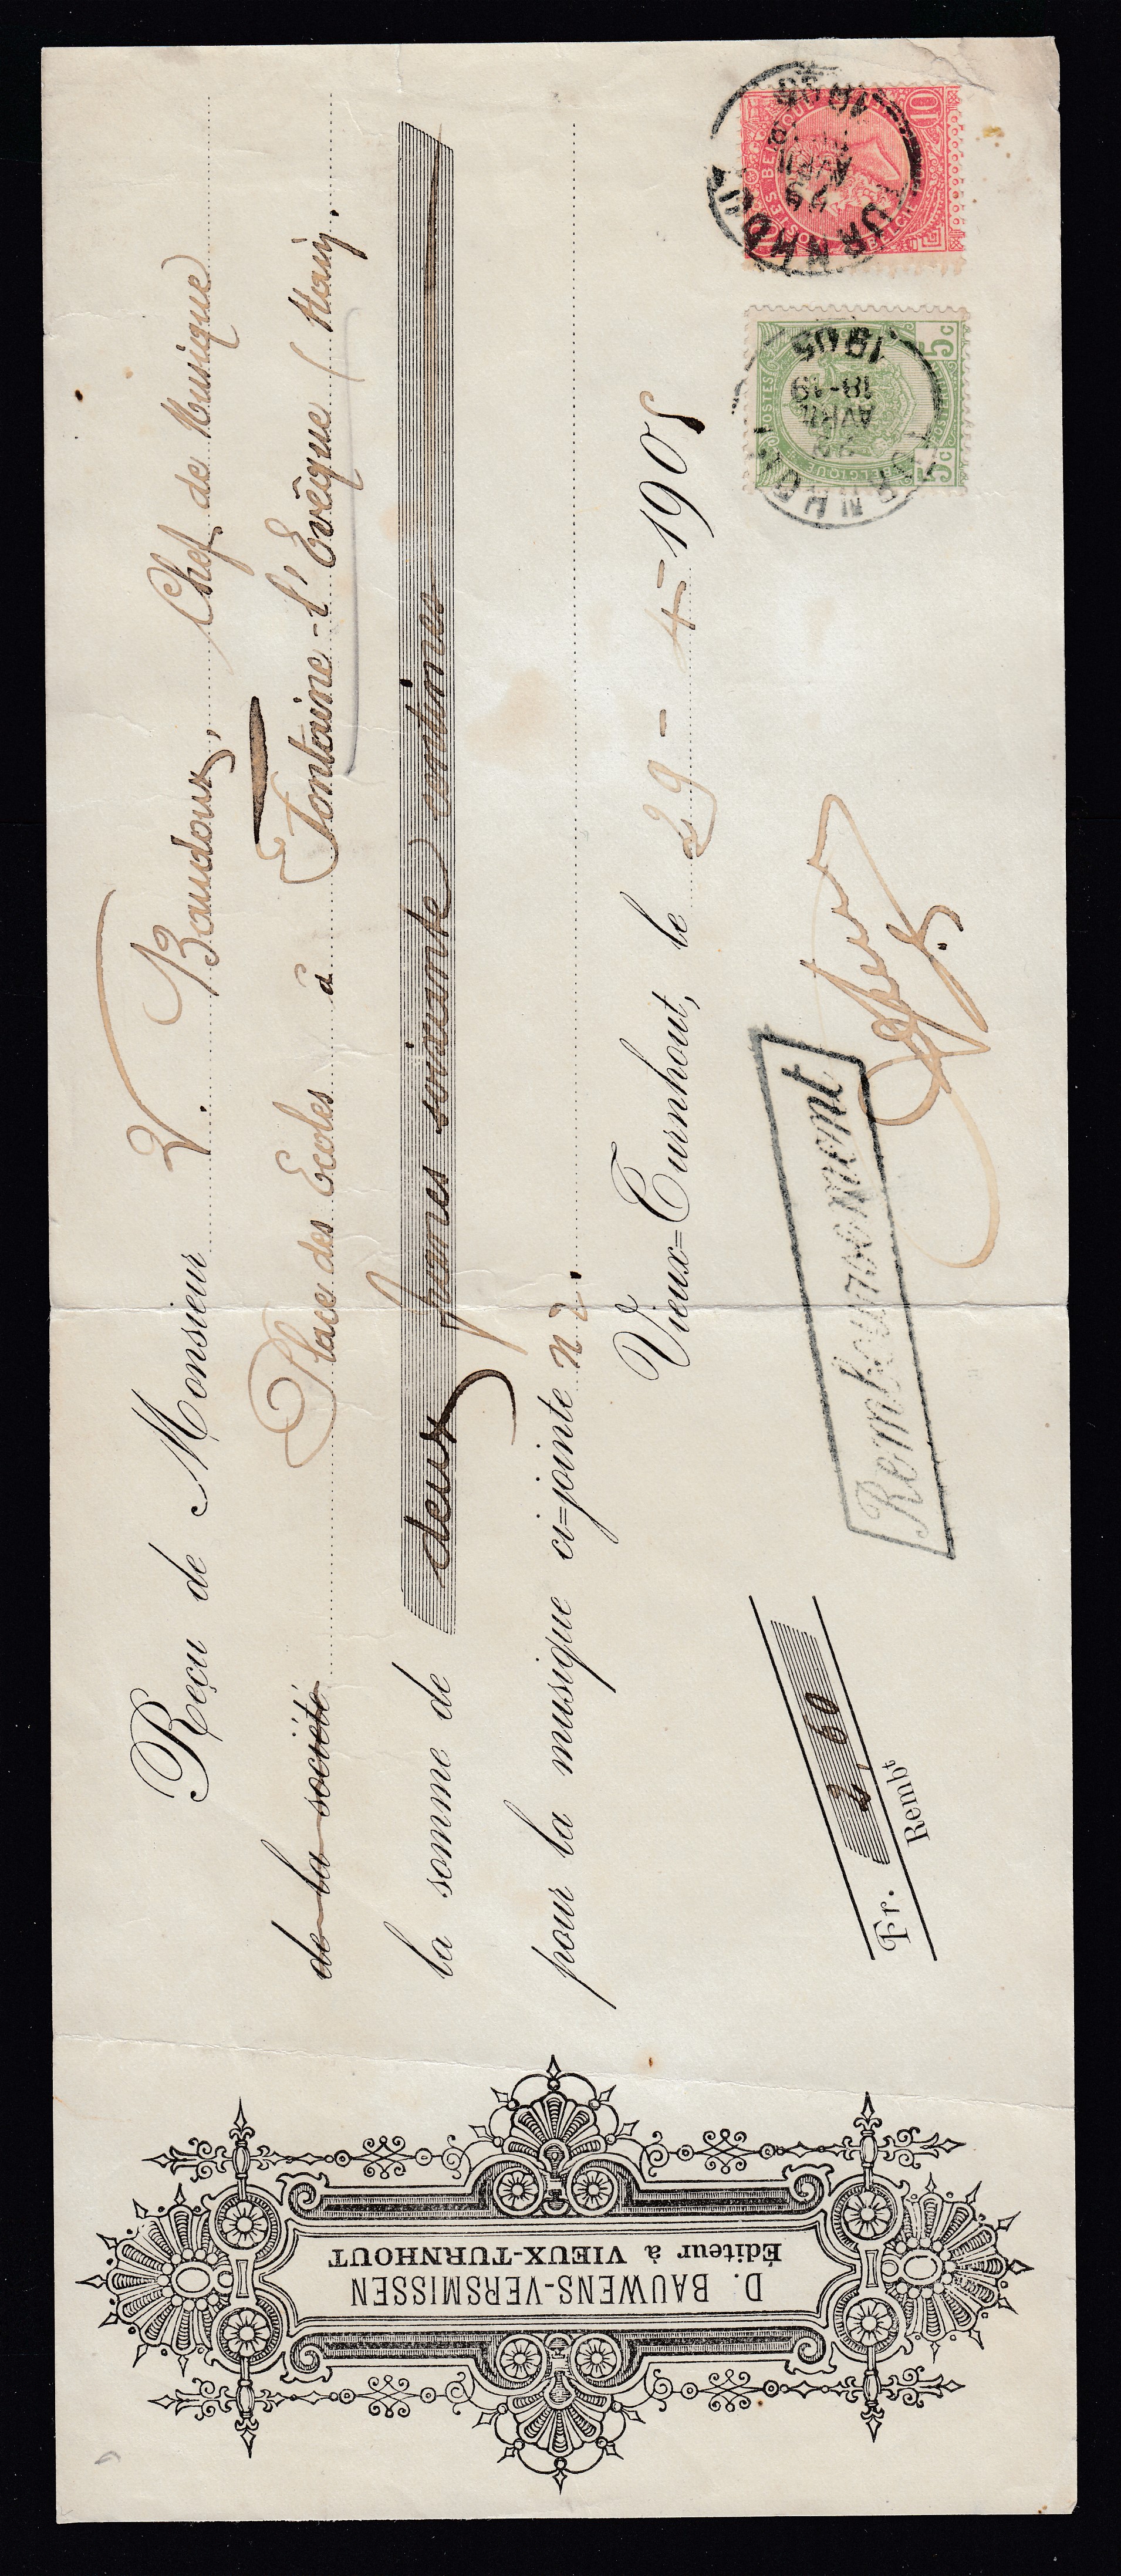 D. BAUWENS-VERSMISSEN
Éditeur à VIEUX-TURNHOUT
Reçu de Monsieur V. Baudoux, Chef de Musique
de la société Place des Ecoles à Fontaine-l'Evêque (Hain).
la somme de deux francs soixante centimes
pour la musique ci=jointe n 2.
Vieux=Turnhout, le 29-4-1905
Fr. 2,60
Rembt
Remboursement
10
TURNHOUT
AVRIL
5c 5c
POSTES
BELGIQUE
TURNHOUT
AVRIL
18-19
1905